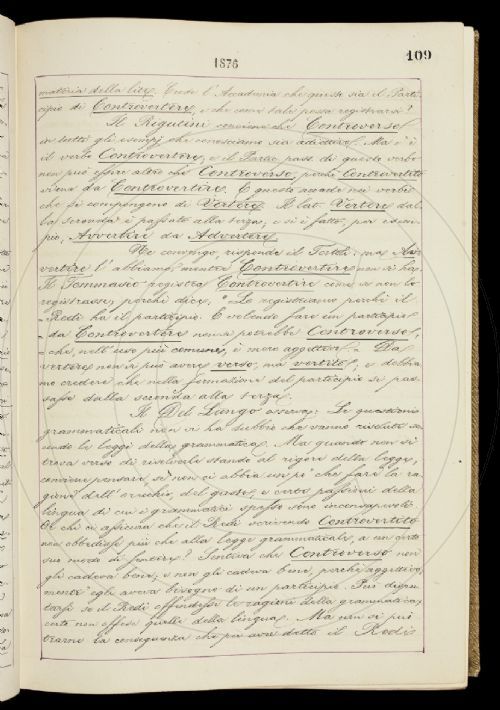 109
1876
materia della lite. Crede l'Accademia che questo sia il Parti-
cipio di Controvertere, e che come tale possa registrarsi?
Il Rigutini conviene che Controverso
in tutti gli esempj che conosciamo sia adiettivo. Ma c'è
il verbo Controvertere, e il Partic. pass. di questo verbo
non può essere altro che Controverso, perchè Controvertito
viene da Controvertire. E questo accade nei verbi
che si compongono di Vertere. Il lat. Vertere dal-
la seconda è passato alla terza, e si è fatto, per esem-
pio, Avvertire da Advertere.
Ne convengo, risponde il Tortoli; ma Av-
vertire l'abbiamo, mentre Controvertire non si ha.
Il Tommaseo registra Controvertire come se non lo
registrasse, perchè dice: "Lo registriamo perchè il
Redi ha il participio. E volendo fare un participio
da Controvertere non si potrebbe Controverso,
che, nell'uso più comune, è mero aggettivo. Da
vertere non si può avere verso, ma vertito, e debbia-
mo credere che nella formazione del participio si pas-
sasse dalla seconda alla terza.
Il Del Lungo osserva: Le questioni
grammaticali non vi ha dubbio che vanno risolute se-
condo le leggi della grammatica. Ma quando non si
trova verso di risolverle stando al rigore della legge,
conviene pensare, se non ci abbia un po' che fare la ra-
gione dell'orecchio, del gusto, e certe passioni della
lingua di cui i grammatici spesso sono inconsapevoli.
Or chi ci assicura che il Redi scrivendo Controvertito
non obbedisse più che alla legge grammaticale, a un certo
suo modo di sentire? Sentiva che Controverso non
gli cadeva bene, e non gli cadeva bene, perchè aggettivo,
mentre egli aveva bisogno di un participio. Può dispu-
tarsi se il Redi offendesse le ragioni della grammatica,
certo non offese quelle della lingua. Ma non si può
trarne la conseguenza che per aver detto il Redi